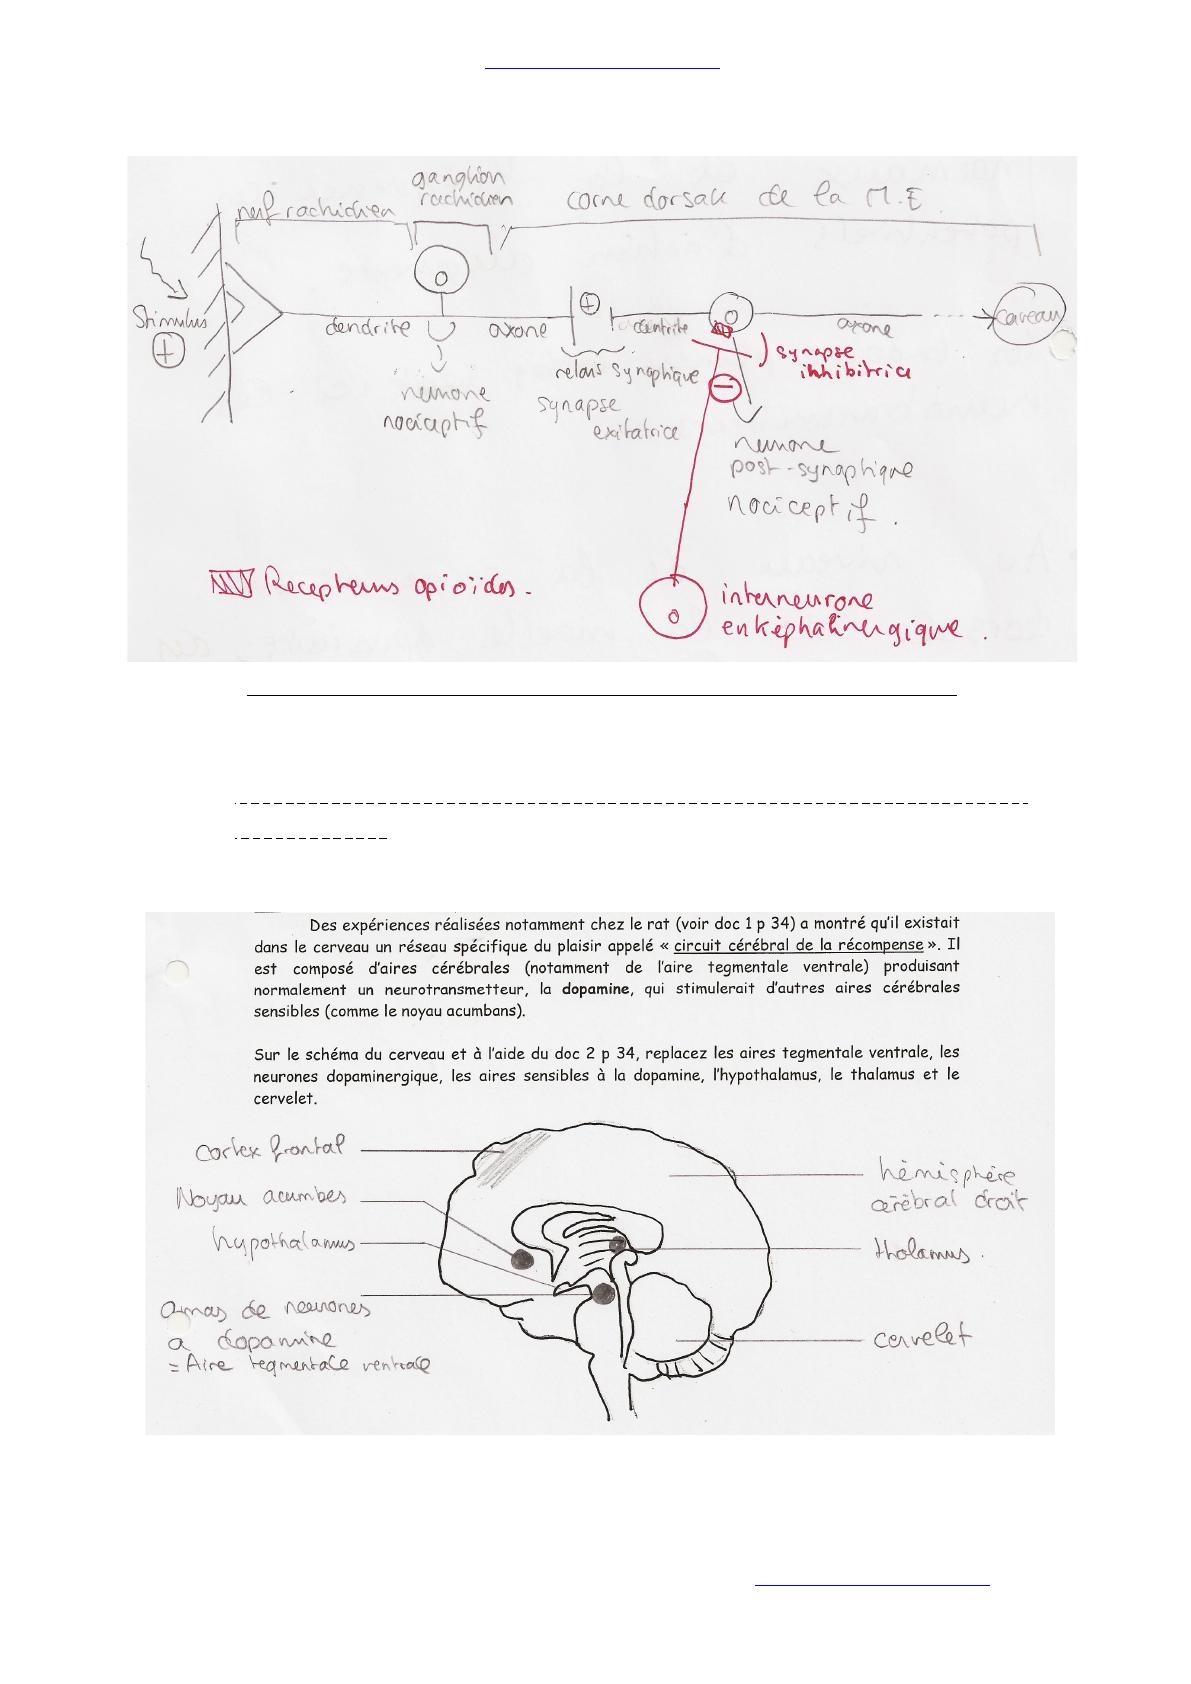 ganglion
nerf rachidien rachidien corne dorsale de la M.E
Stimulus
+
dendrite axone + dentrite axone cerveau
synapse
inhibitrice
relais synaptique
neurone synapse
nociceptif exitatrice
neurone
post-synaptique
nociceptif.
Recepteurs opioïdes.
interneurone
enképhalinergique.
Des expériences réalisées notamment chez le rat (voir doc 1 p 34) a montré qu'il existait
dans le cerveau un réseau spécifique du plaisir appelé « circuit cérébral de la récompense ». Il
est composé d'aires cérébrales (notamment de l'aire tegmentale ventrale) produisant
normalement un neurotransmetteur, la dopamine, qui stimulerait d'autres aires cérébrales
sensibles (comme le noyau acumbans).
Sur le schéma du cerveau et à l'aide du doc 2 p 34, replacez les aires tegmentale ventrale, les
neurones dopaminergique, les aires sensibles à la dopamine, l'hypothalamus, le thalamus et le
cervelet.
Cortex frontal
Noyau acumbes
hypothalamus
Amas de neurones
a dopamine
= Aire tegmentale ventrale
hémisphère
cérébral droit
thalamus.
cervelet